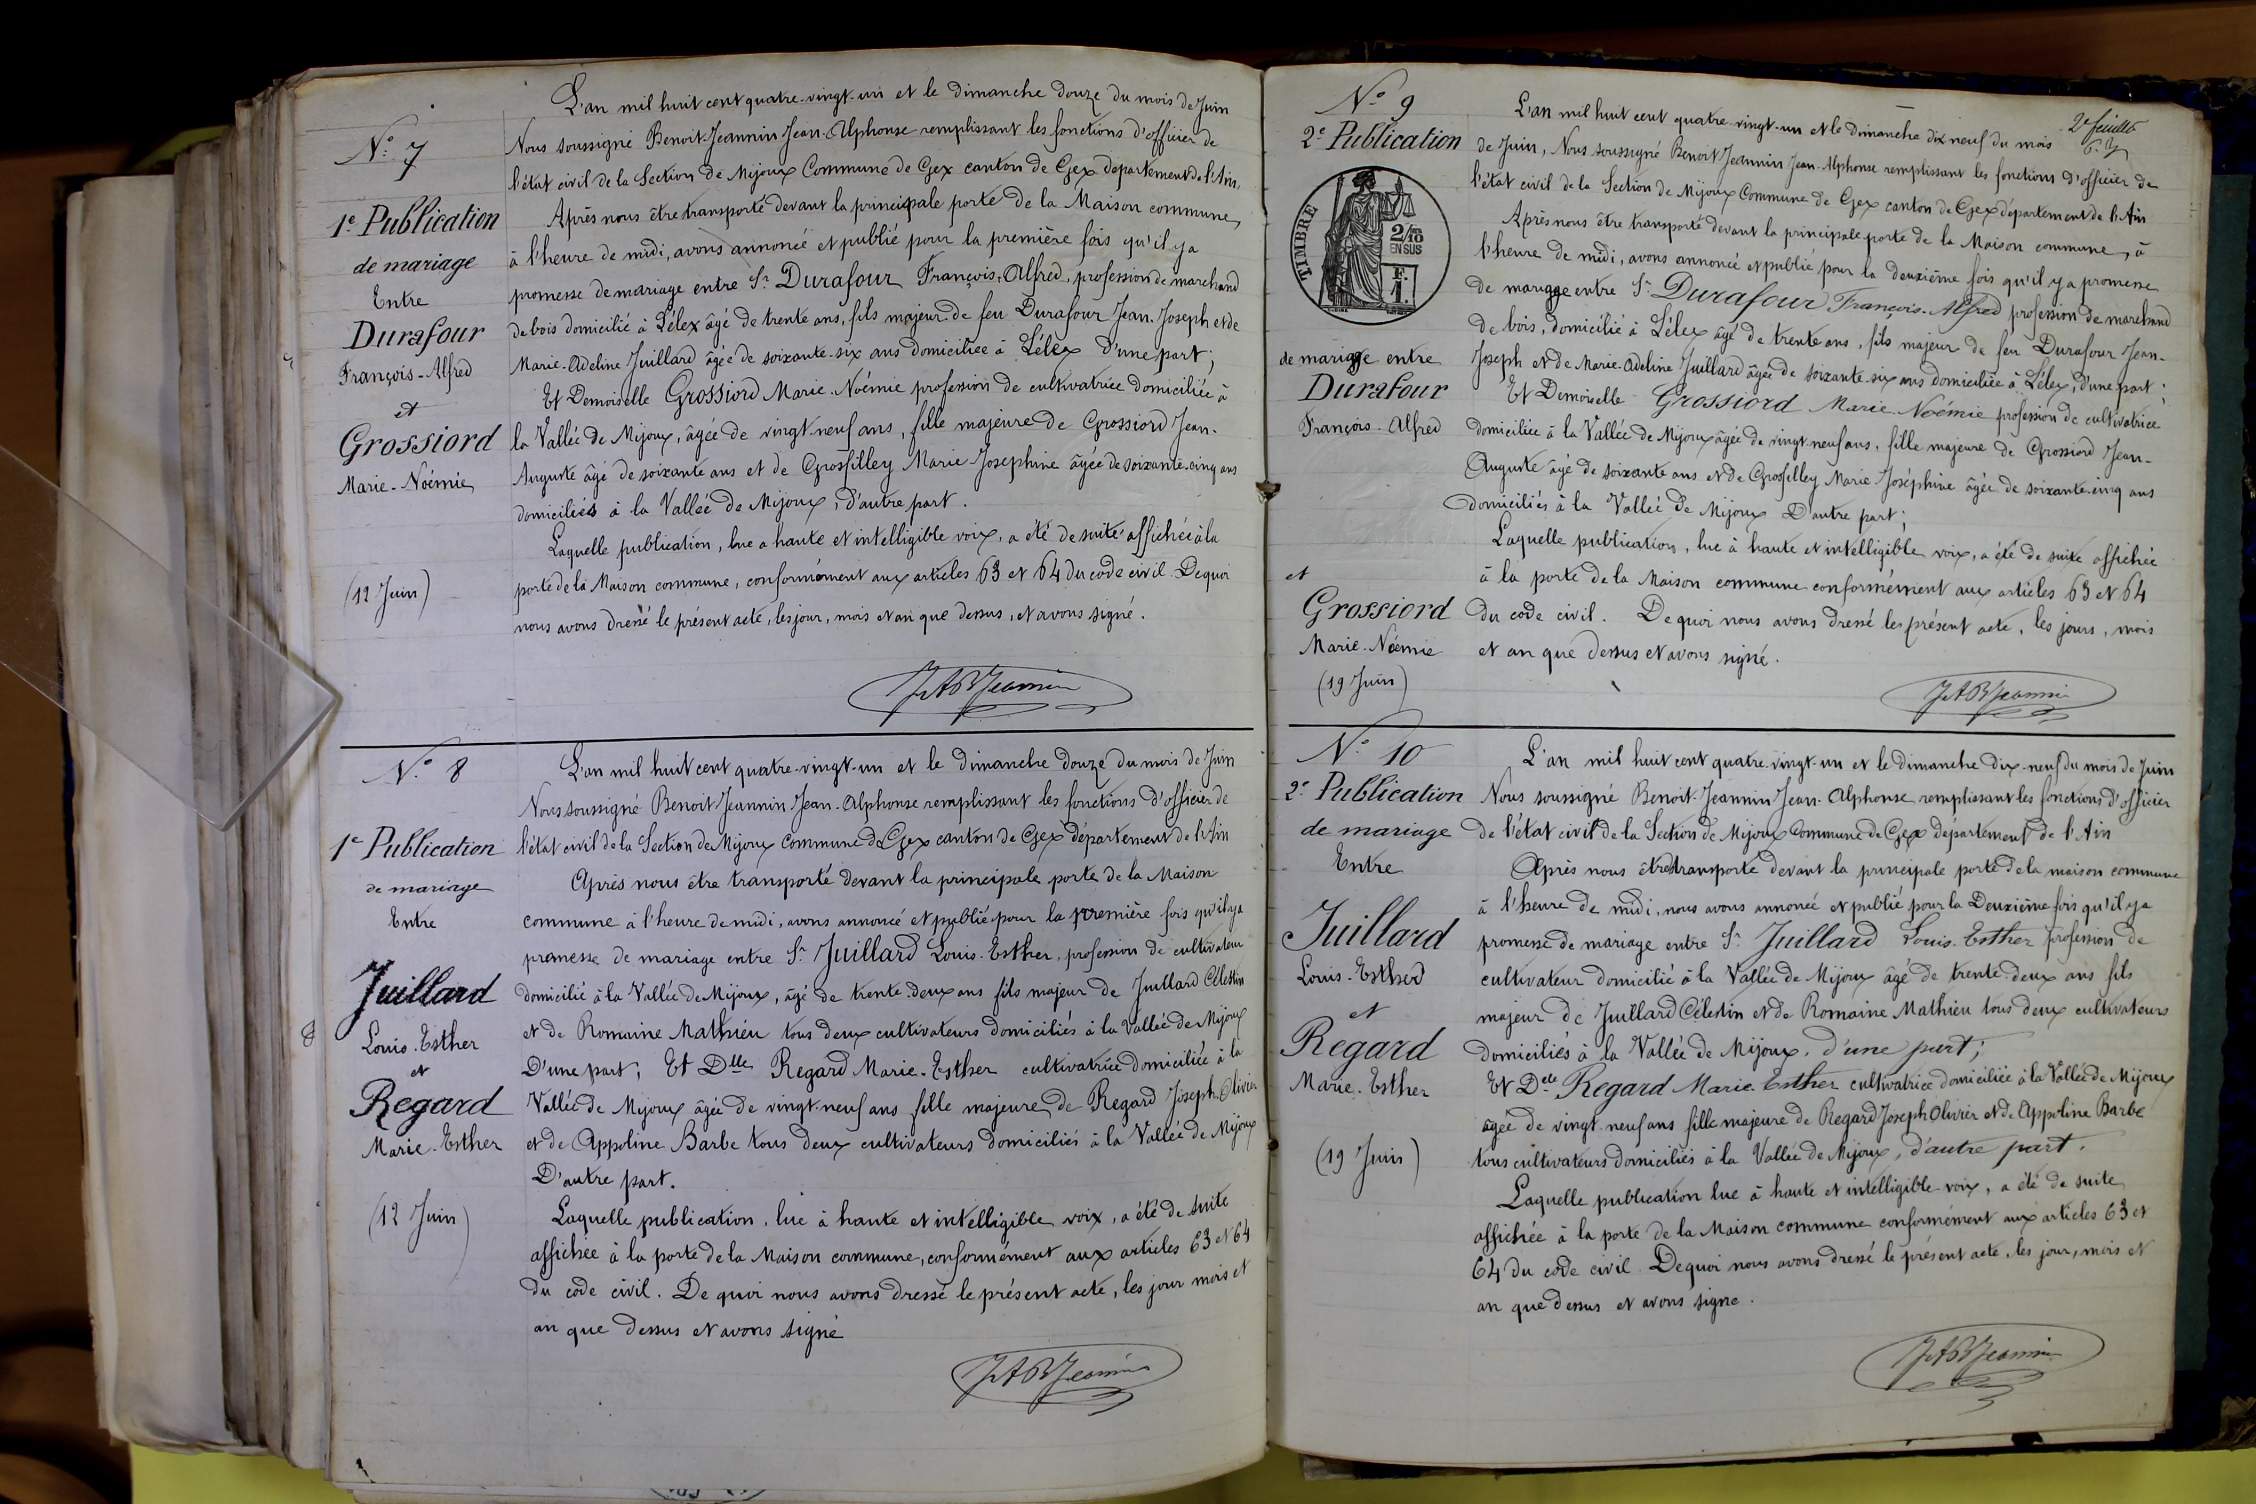 N.° 7
1.e Publication
de mariage
Entre
Durafour
François-Alfred
et
Grossiord
Marie-Noémie
(12 Juin)
L'an mil huit cent quatre-vingt-un et le dimanche douze du mois de Juin
Nous soussigné Benoit-Jeannin Jean-Alphonse remplissant les fonctions d'officier de
l'état civil de la Section de Mijoux Commune de Gex canton de Gex département de l'Ain,
Après nous être transporté devant la principale porte de la Maison commune,
à l'heure de midi, avons annoncé et publié pour la première fois qu'il y a
promesse de mariage entre Sr. Durafour François-Alfred, profession de marchand
de bois domicilié à Lélex âgé de trente ans, fils majeur de feu Durafour Jean-Joseph et de
Marie-Adeline Juillard âgée de soixante-six ans domiciliée à Lélex d'une part;
Et Demoiselle Grossiord Marie-Noémie profession de cultivatrice domiciliée à
la Vallée de Mijoux, âgée de vingt-neuf ans, fille majeure de Grossiord Jean-
Auguste âgé de soixante ans et de Grosfilley Marie Josephine âgée de soixante-cinq ans
domiciliés à la Vallée de Mijoux, d'autre part.
Laquelle publication, lue à haute et intelligible voix, a été de suite affichée à la
porte de la Maison commune, conformément aux articles 63 et 64 du code civil. De quoi
nous avons dressé le présent acte, les jour, mois et an que dessus, et avons signé.
JABJeannin
N.° 8
1.e Publication
de mariage
Entre
Juillard
Louis-Esther
et
Regard
Marie-Esther
(12 Juin)
L'an mil huit cent quatre-vingt-un et le dimanche douze du mois de Juin
Nous soussigné Benoit-Jeannin Jean-Alphonse remplissant les fonctions d'officier de
l'état civil de la Section de Mijoux Commune de Gex canton de Gex département de l'Ain
Après nous être transporté devant la principale porte de la Maison
commune à l'heure de midi, avons annoncé et publié pour la première fois qu'il y a
promesse de mariage entre Sr. Juillard Louis-Esther, profession de cultivateur
domicilié à la Vallée de Mijoux, âgé de trente-deux ans fils majeur de Juillard Célestin
et de Romaine Mathieu tous deux cultivateurs domiciliés à la Vallée de Mijoux
D'une part; Et Dlle Regard Marie-Esther cultivatrice domiciliée à la
Vallée de Mijoux âgée de vingt-neuf ans fille majeure de Regard Joseph-Olivier
et de Appoline Barbe tous deux cultivateurs domiciliés à la Vallée de Mijoux
D'autre part.
Laquelle publication, lue à haute et intelligible voix, a été de suite
affichée à la porte de la Maison commune, conformément aux articles 63 et 64
du code civil. De quoi nous avons dressé le présent acte, les jour mois et
an que dessus et avons signé
JABJeannin
2e feuillet
N.° 9
2.e Publication
TIMBRE
2/10
EN SUS
F.
1.
de mariage entre
Durafour
François-Alfred
et
Grossiord
Marie-Noémie
(19 Juin)
L'an mil huit cent quatre-vingt-un et le dimanche dix neuf du mois
de Juin, Nous soussigné Benoit-Jeannin Jean-Alphonse remplissant les fonctions d'officier de
l'état civil de la Section de Mijoux Commune de Gex canton de Gex département de l'Ain
Après nous être transporté devant la principale porte de la Maison commune, à
l'heure de midi, avons annoncé et publié pour la deuxième fois qu'il y a promesse
de mariage entre Sr. Durafour François-Alfred profession de marchand
de bois, domicilié à Lélex âgé de trente ans, fils majeur de feu Durafour Jean-
Joseph et de Marie-Adeline Juillard âgée de soixante-six ans domiciliée à Lélex, d'une part;
Et Demoiselle Grossiord Marie Noémie profession de cultivatrice
domiciliée à la Vallée de Mijoux âgée de vingt-neuf ans, fille majeure de Grossiord Jean-
Auguste âgé de soixante ans et de Grosfilley Marie Joséphine âgée de soixante-cinq ans
domiciliés à la Vallée de Mijoux D'autre part;
Laquelle publication, lue à haute et intelligible voix, a été de suite affichée
à la porte de la Maison commune conformément aux articles 63 et 64
du code civil. De quoi nous avons dressé les présent acte, les jours, mois
et an que dessus et avons signé.
JABJeannin
N.° 10
2.e Publication
de mariage
Entre
Juillard
Louis-Esther
et
Regard
Marie-Esther
(19 Juin)
L'an mil huit cent quatre-vingt-un et le dimanche dix-neuf du mois de Juin
Nous soussigné Benoit-Jeannin Jean-Alphonse remplissant les fonctions d'officier
de l'état civil de la Section de Mijoux Commune de Gex département de l'Ain
Après nous être transporté devant la principale porte de la maison commune
à l'heure de midi, nous avons annoncé et publié pour la Deuxième fois qu'il y a
promesse de mariage entre Sr. Juillard Louis-Esther profession de
cultivateur domicilié à la Vallée de Mijoux âgé de trente-deux ans fils
majeur de Juillard Célestin et de Romaine Mathieu tous deux cultivateurs
domiciliés à la Vallée de Mijoux, d'une part;
Et Delle Regard Marie-Esther cultivatrice domiciliée à la Vallée de Mijoux
âgée de vingt-neuf ans fille majeure de Regard Joseph Olivier et de Appoline Barbe
tous cultivateurs domiciliés à la Vallée de Mijoux, d'autre part.
Laquelle publication lue à haute et intelligible voix, a été de suite
affichée à la porte de la Maison commune conformément aux articles 63 et
64 du code civil. De quoi nous avons dressé le présent acte, les jour, mois et
an que dessus et avons signé.
JABJeannin